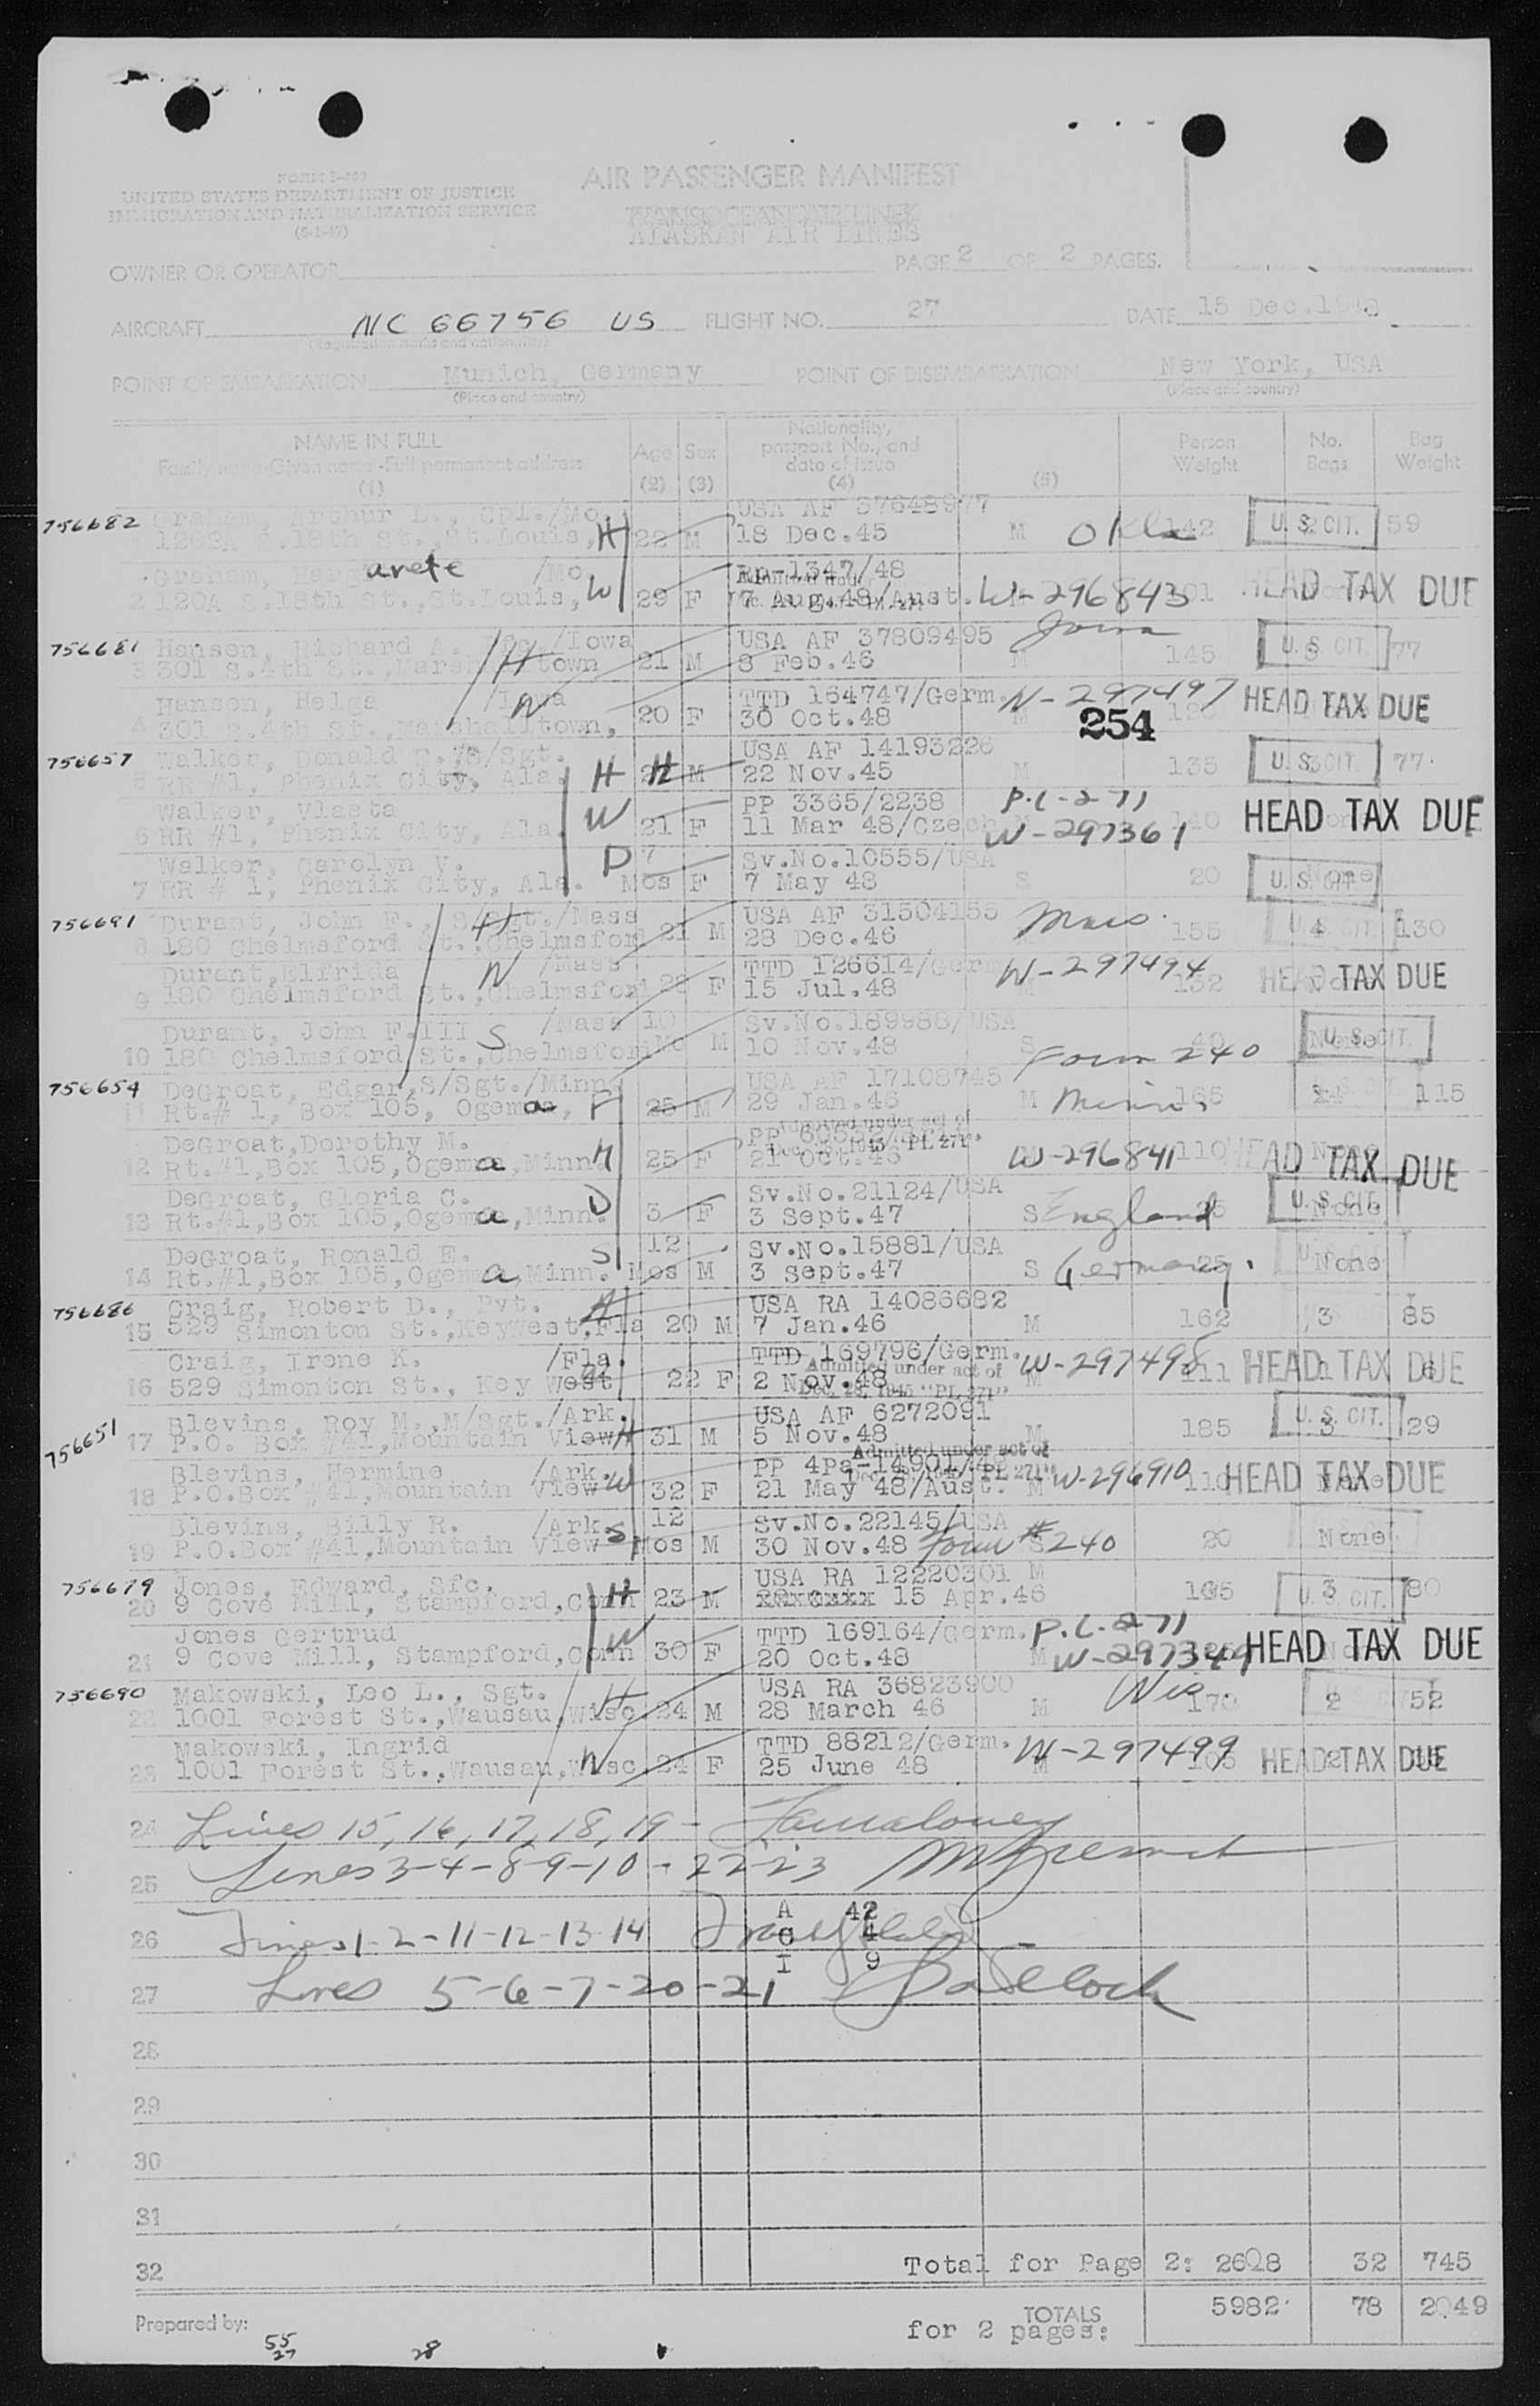 FORM I-
UNITED STATES DEPARTMENT OF JUSTICE
IMMIGRATION AND NATURALIZATION SERVICE
(6-1-47)
AIR PASSENGER MANIFEST
TRANSOCEAN AIR LINES
ALASKAN AIR LINES
OWNER OR OPERATOR
PAGE 2 OF 2 PAGES.
AIRCRAFT NC 66756 US FLIGHT NO. 27 DATE 15 Dec.1948
(Registration marks and nationality)
POINT OF EMBARKATION Munich, Germany POINT OF DISEMBARKATION New York, USA
(Place and country) (Place and country)
NAME IN FULL Age Sex Nationality, passport No., and date of issue Person Weight No. Bags Bag Weight
Family name-Given name-Full permanent address
(1) (2) (3) (4) (5)
756682 Graham, Arthur L., Cpl./Mo. USA AF 37648977
1202A S.18th St., St.Louis, H 22 M 18 Dec.45 M Okla 142 U. S. CIT. 59
Graham, arete /Mo. Pp-1347/48
2 S.18th St., St.Louis, W 29 F 7 Aug.48/Aust. W-296843 HEAD TAX DUE
756681 Hansen, Richard A. /Iowa USA AF 37809495 Iowa
3 301 S.4th St., H town 21 M 8 Feb.46 M 145 U. S. CIT. 77
Hansen, Helga /Iowa W TTD 164747/Germ. W-297497
4 301 S.4th St., Marshalltown, 20 F 30 Oct.48 M 254 HEAD TAX DUE
756657 Walker, Donald S/Sgt. USA AF 14193226
5 RR #1, Phenix City, Ala. H M 22 Nov.45 M 135 U. S. CIT. 77
Walker, Vlasta PP 3365/2238 P.L-271
6 RR #1, Phenix City, Ala. W 21 F 11 Mar 48/Czech W-297361 140 HEAD TAX DUE
Walker, Carolyn V. D 7 Sv.No.10555/USA
7 RR # 1, Phenix City, Ala. Mos F 7 May 48 S 20 U. S. CIT. None
756691 Durant, John F., S/Sgt./Mass H USA AF 31504155 Mass.
8 180 Chelmsford St., Chelmsford 21 M 28 Dec.46 155 4 U. S. CIT. 130
Durant, Elfrida /Mass W TTD 126614/Germ W-297494
9 180 Chelmsford St., Chelmsford 28 F 15 Jul.48 M 132 HEAD TAX DUE
Durant, John F.III S /Mass 10 Sv.No.189988/USA
10 180 Chelmsford St., Chelmsford Mo M 10 Nov.48 S Form 240 40 None U. S. CIT.
756654 DeGroat, Edgar, S/Sgt./Minn. USA AF 17108745
11 Rt.# 1, Box 105, Ogema, 25 M 29 Jan.46 M Minn. 165 115
DeGroat, Dorothy M. PP Admitted under act of
12 Rt.#1,Box 105,Ogema,Minn. 25 F 21 Oct.46 PL 271 W-296841 110 None HEAD TAX DUE
DeGroat, Gloria C. D Sv.No.21124/USA
13 Rt.#1,Box 105,Ogema,Minn. 3 F 3 Sept.47 S England 35 U. S. CIT. None
DeGroat, Ronald E. S 12 Sv.No.15881/USA
14 Rt.#1,Box 105,Ogema,Minn. Mos M 3 Sept.47 S Germany. 25 None
756686 Craig, Robert D., Pvt. H USA RA 14086682
15 529 Simonton St., KeyWest,Fla 20 M 7 Jan.46 M 162 3 85
Craig, Irene K. /Fla. TTD 169796/Germ. Admitted under act of W-297498
16 529 Simonton St., Key West 22 F 2 Nov.48 Dec. 28, 1945 "PL 271" M 111 1 6 HEAD TAX DUE
756651 Blevins, Roy M.,M/Sgt./Ark. USA AF 6272091
17 P.O. Box #41,Mountain View H 31 M 5 Nov.48 M 185 3 U. S. CIT. 29
Blevins, Hermine /Ark. W PP 4Pa-14901/ Admitted under act of PL 271
18 P.O.Box #41,Mountain View 32 F 21 May 48/Aust. M W-296910 110 None HEAD TAX DUE
Blevins, Billy R. /Ark. S 12 Sv.No.22145/USA
19 P.O.Box #41,Mountain View Mos M 30 Nov.48 Form #240 20 None
756679 Jones, Edward, Sfc. H USA RA 12220301 M
20 9 Cove Mill, Stampford,Conn 23 M 15 Apr.46 165 3 U. S. CIT. 80
Jones Gertrud W TTD 169164/Germ. P.L.271
21 9 Cove Mill, Stampford,Conn 30 F 20 Oct.48 M W-297349 HEAD TAX DUE
756690 Makowski, Leo L., Sgt. H USA RA 36823900 Wis
22 1001 Forest St.,Wausau,Wisc 24 M 28 March 46 M 170 2 52
Makowski, Ingrid W TTD 88212/Germ. W-297499
23 1001 Forest St.,Wausau,Wisc 24 F 25 June 48 M 105 2 HEAD TAX DUE
24 Lines 15, 16, 17, 18, 19 -
25 Lines 3-4-8-9-10-22-23
26 Lines 1-2-11-12-13-14 A 42 C 4 I 9
27 Lines 5-6-7-20-21
28
29
30
31
32 Total for Page 2: 2608 32 745
Prepared by: TOTALS for 2 pages: 5982 78 2049
55
27 28